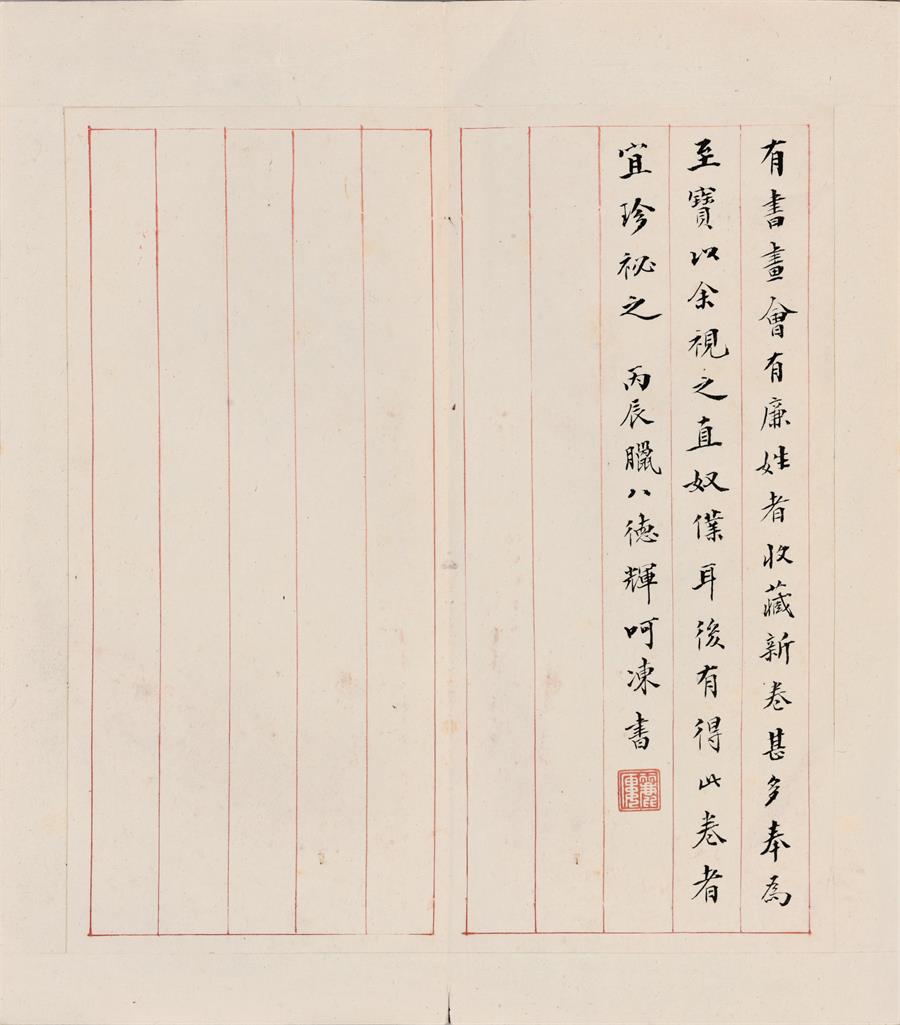 有書畫會有廉姓者收藏新卷甚多奉為
至寶以余視之直奴僕耳後有得此卷者
宜珍祕之 丙辰臘八德輝呵凍書